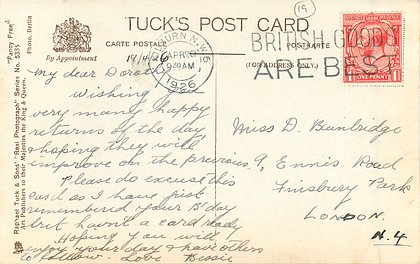 (19)
TUCK'S POST CARD
CARTE POSTALE
By Appointment
"Fancy Free"
Photo, Berlin
Raphael Tuck & Sons' "Real Photograph" Series No. 5335
Art Publishers to their Majesties the King & Queen.
BURN N.W.6
APR 20
9.30AM
1926
BRITISH GOODS
ARE BEST
(FOR ADDRESS ONLY.)
ONE PENNY
1
19/4/26
My dear Dorothy
Wishing you
very many happy
returns of the day
& hoping they will
improve on the previous
Please do excuse this
card as I have just
remembered your B'day
but havn't a card ready
Hoping you will
enjoy your day & have others
to follow. Love Bessie
Miss D. Bembridge
9, Ennis Road
Finsbury Park
LONDON.
N.4